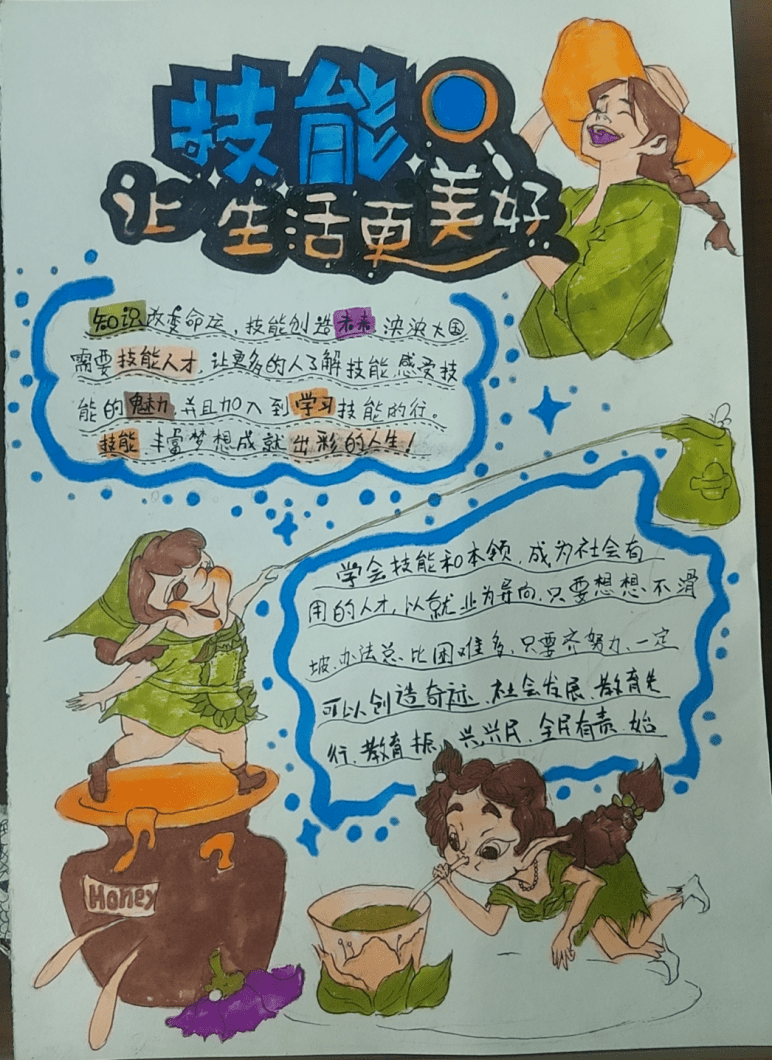 技能
让生活更美好
知识改变命运，技能创造未来 泱泱大国
需要技能人才，让更多的人了解技能 感受技
能的魅力，并且加入到学习技能的行。
技能 丰富梦想成就 出彩的人生！
学会技能和本领，成为社会有
用的人才，以就业为导向.只要想想.不滑
坡.办法总比困难多.只要齐努力、一定
可以创造奇迹.社会发展.教育先
行.教育振 兴兴民.全民有责.始
Honey